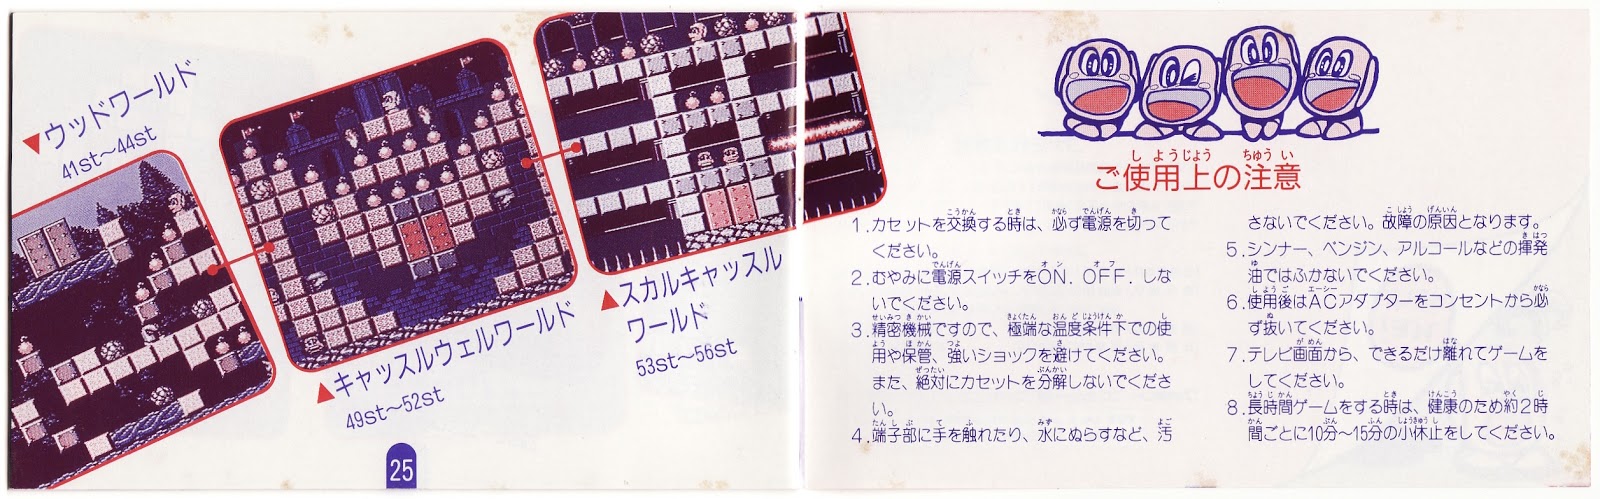 ▼ウッドワールド
41st〜44st
▲キャッスルウェルワールド
49st〜52st
▲スカルキャッスル
ワールド
53st〜56st
25
ご使用上の注意
しようじょう ちゅうい
1.カセットを交換する時は、必ず電源を切って
ください。
2.むやみに電源スイッチをON.OFF.しな
いでください。
3.精密機械ですので、極端な温度条件下での使
用や保管、強いショックを避けてください。
また、絶対にカセットを分解しないでくださ
い。
4.端子部に手を触れたり、水にぬらすなど、汚
さないでください。故障の原因となります。
5.シンナー、ベンジン、アルコールなどの揮発
油ではふかないでください。
6.使用後はACアダプターをコンセントから必
ず抜いてください。
7.テレビ画面から、できるだけ離れてゲームを
してください。
8.長時間ゲームをする時は、健康のため約2時
間ごとに10分〜15分の小休止をしてください。